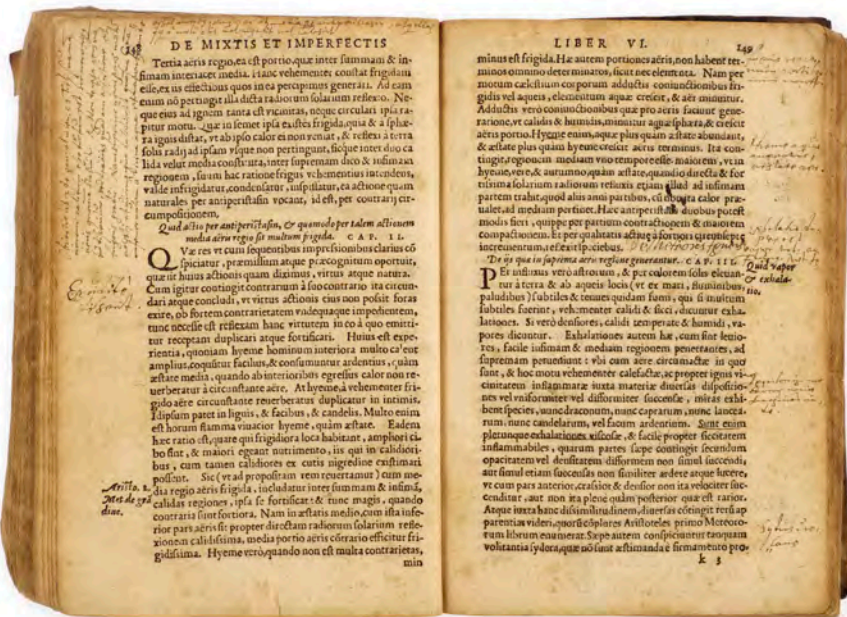 148
DE MIXTIS ET IMPERFECTIS
Tertia aëris regio, ea est portio, quæ inter summam & in-
fimam interiacet media. Hanc vehementer constat frigidam
esse, ex iis effectibus quos in ea percipimus generari. Ad eam
enim nō pertingit illa dicta radiorum solarium reflexio. Ne-
que eius ad ignem tanta est vicinitas, neque circulari ipsa ra-
pitur motu. Quæ in semet ipsa existēs frigida, quia & a sphæ-
ra ignis distat, vt ab ipso calor ei non veniat, & reflexi à terra
solis radij ad ipsam vsque non pertingunt, sicque inter duo ca
lida velut media constituta, inter supremam dico & infimam
regionem, suum hac ratione frigus vehementius intendens,
valde infrigidatur, condensatur, inspissatur, ea actione quam
naturales per antiperistasin vocant, id est, per contrarij cir-
cumpositionem.
Quid actio per antiperistasin, & quomodo per talem actionem
media aëris regio sit multum frigida. CAP. II.
QVæ res vt cum sequentibus impressionibus clarius cō
spiciatur, præmissum atque præcognitum oportuit,
quæ sit huius actionis quam diximus, virtus atque natura.
Cum igitur contingit contrarium à suo contrario ita circun-
dari atque concludi, vt virtus actionis eius non possit foras
exire, ob fortem contrarietatem vndequaque impedientem,
tunc necesse est reflexam hanc virtutem in eo à quo emitti-
tur receptam duplicari atque fortificari. Huius est expe-
rientia, quoniam hyeme hominum interiora multo calent
amplius, coquitur facilius, & consumuntur ardentius, quàm
æstate media, quando ab interioribus egressus calor non re-
uerberatur à circunstante aëre. At hyeme, à vehementer fri-
gido aëre circunstante reuerberatus duplicatur in intimis.
Idipsum patet in lignis, & facibus, & candelis. Multo enim
est horum flamma viuacior hyeme, quàm æstate. Eadem
hæc ratio est, quare qui frigidiora loca habitant, amphori ci-
bo sint, & maiori egeant nutrimento, iis qui in calidiori-
bus, cum tamen calidiores ex cutis nigredine existimari
possent. Sic (vt ad propositam rem reuertamur) cum me-
dia regio aëris frigida, includatur inter summam & infimā,
calidas regiones, ipsa se fortificat: & tunc magis, quando
contraria sunt fortiora. Nam in æstatis medio, cum ista infe-
rior pars aëris sit propter directam radiorum solarium refle-
xionem calidissima, media portio aëris cōtrario efficitur fri-
gidissima. Hyeme verò, quando non est multa contrarietas,
min
Aristo. 1.
Met. de grā
dine.
LIBER VI.
149
minus est frigida. Hæ autem portiones aëris, non habent ter-
minos omnino determinatos, sicut nec elementa. Nam per
motum cælestium corporum adductis coniunctionibus fri-
gidis vel aqueis, elementum aquæ crescit, & aër minuitur.
Adductis verò coniunctionibus quæ pro aëris faciunt gene-
ratione, vt calidis & humidis, minuitur aquæ sphæra, & crescit
aëris portio. Hyeme enim, aquæ plus quàm æstate abundant,
& æstate plus quàm hyeme crescit aëris terminus. Ita con-
tingit, regionem mediam vno tempore esse maiorem, vt in
hyeme, vere, & autumno, quàm æstate, quando directa & for
tissima solarium radiorum reflexio etiam illud ad infimam
partem trahit, quod alus anni partibus, cū minor a calor præ-
ualet, ad mediam pertinet. Hæc antiperistasis duobus potest
modis fieri, quippe per partium contractionem & maiorem
compactionem. Et per qualitatis actiuæ à fortiori circunscripte
incrementum, refert species.
De iis quæ in suprema aëris regione generantur. CAP. III.
PEr influxus verò astrorum, & per colorem solis eleuan-
tur à terra & ab aqueis locis (vt ex mari, fluminibus,
paludibus) subtiles & tenues quidam fumi, qui si multum
subtiles fuerint, vehementer calidi & sicci, dicuntur exha-
lationes. Si verò densiores, calidi temperate & humidi, va-
pores dicuntur. Exhalationes autem hæ, cum sint leuio-
res, facile infimam & mediam regionem penetrantes, ad
supremam perueniunt: vbi cum aëre circumactæ in quo
sunt, & hoc motu vehementer calefactæ, ac propter ignis vi-
cinitatem inflammatæ iuxta materiæ diuersas dispositio-
nes vel vniformiter vel difformiter succensæ, miras exhi-
bent species, nunc draconum, nunc caprarum, nunc lancea-
rum, nunc candelarum, vel facum ardentium. Sunt enim
plerunque exhalationes viscosæ, & facile propter siccitatem
inflammabiles, quarum partes sæpe contingit secundum
opacitatem vel densitatem difformem non simul succendi,
aut simul etiam succensas non similiter ardere atque lucere,
vt cum pars anterior, crassior & densior non ita velociter suc-
cenditur, aut non ita plene quàm posterior quæ est rarior.
Atque iuxta hanc dissimilitudinem, diuersas cōtingit rerū ap
parentias videri, quorū cōplures Aristoteles primo Meteoro-
rum librum enumerat. Sæpe autem conspiciuntur tanquam
volitantia sydera, quæ nō sunt æstimanda è firmamento pro-
k 3
Quid vapor
& exhala-
tio.